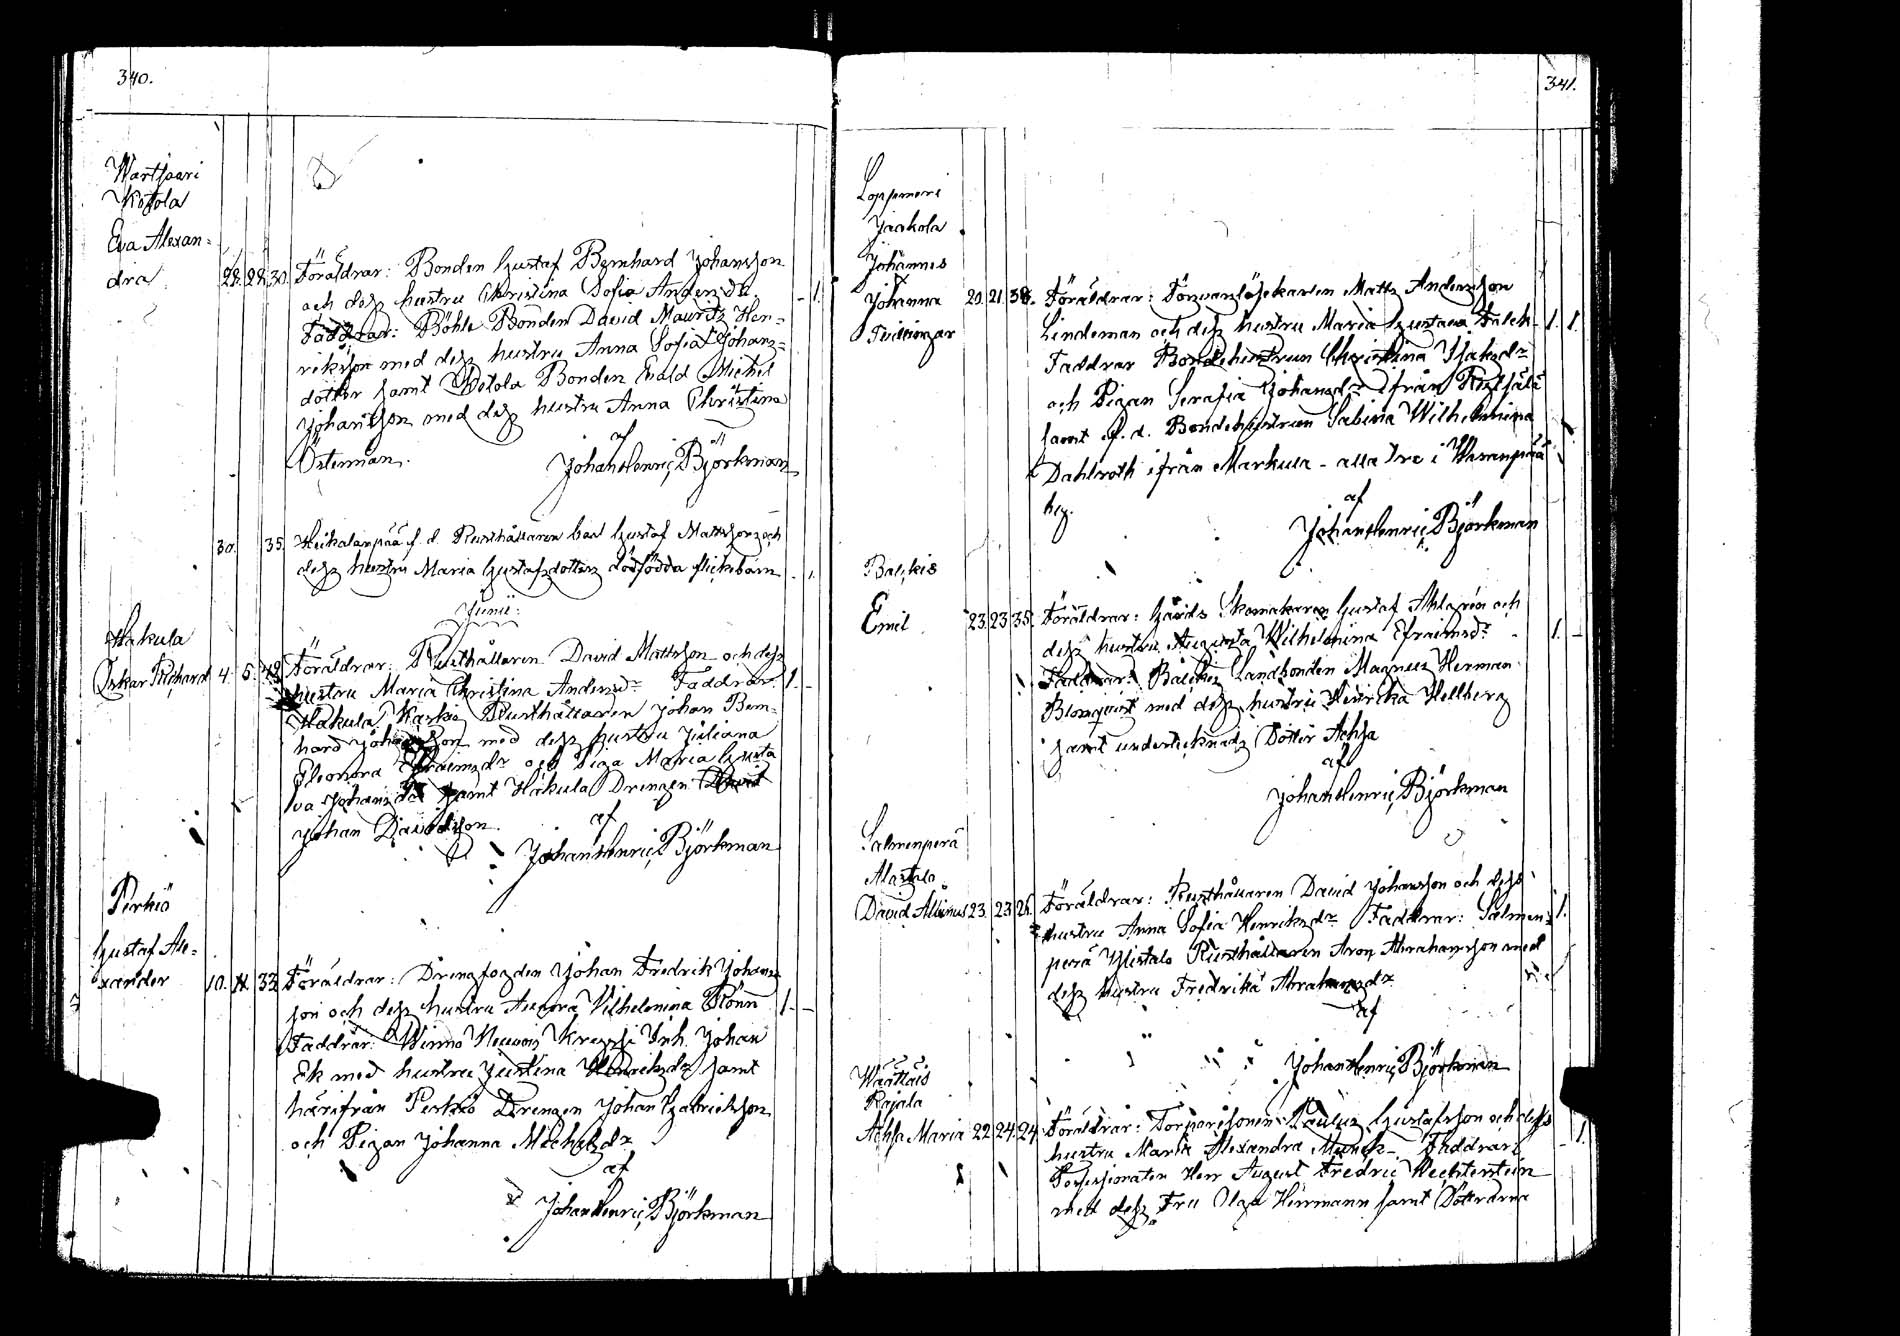 340.
Wartsaari
Kotola
Eva Alexan-
dra 28. 28. 30. Föräldrar: Bonden Gustaf Bernhard Johansson
och dess hustru Christina Sofia Andersdr. - 1.
Faddrar: Böhle Bonden David Mauritz Hen-
riksson med dess hustru Anna Sofia Johans-
dotter samt Ketola Bonden Evald Michel
Johansson med dess hustru Anna Christina
Österman.
af
Johan Henric Björkman
30. 35. Heikolanpää f. d. Rusthållaren Gustaf Mattsons och
dess hustru Maria Gustafsdotters dödfödda flickebarn - 1.
Junii:
Hakula
Oskar Richard 4. 5. 42. Föräldrar: Rusthållaren David Mattsson och dess
hustru Maria Christina Andersdr Faddrar: 1. -
Hakula Karkis Rusthållaren Johan Bern-
hard Johansson med dess hustru Juliana
Eleonora Efraimsdr och Piga Maria Gusta
va Johansdr samt Hakula Drengen
Johan Davidsson.
af
Johan Henric Björkman
Perkiö
Gustaf Ale-
xander 10. 11. 33. Föräldrar: Drengfogden Johan Fredrik Johans-
son och dess hustru Aurora Vilhelmina Rönn 1. -
Faddrar: Winno Inh. Johan
Ek med hustru Justina Henriksdr samt
härifrån Perkiö Drengen Johan Gabrielsson
och Pigan Johanna Michelsdr
af
Johan Henric Björkman
341.
Loppmeri
Jaakola
Johannes
Johanna 20. 21. 38. Föräldrar: Försvarslösekarlen Matts Andersson
Tvillingar Lindeman och dess hustru Maria Gustava Falck - 1. 1.
Faddrar Bondehustrun Christina Isaksdr
och Pigan Serafia Johansdr ifrån
samt f. d. Bondehustrun Sabina Wilhelmina
Dahlroth ifrån Markula - alla tre i Waranpää
by.
af
Johan Henric Björkman
Balckis
Emil 23. 23. 35. Föräldrar: Gårds Skomakaren Gustaf Ahlgrén och
dess hustru Augusta Wilhelmina Efraimsdr - 1. -
Faddrar: Balckis Landbonden Magnus Herman
Blomqvist med dess hustru Henrika Hellberg
samt undertecknads Dotter Achsa
af
Johan Henric Björkman
Salmenperä
Alastalo
David Albinus 23. 23. 26. Föräldrar: Rusthållaren David Johansson och dess
hustru Anna Sofia Henriksdr Faddrar: Salmen- 1.
perä Ylistalo Rusthållaren Aron Abrahamsson med
dess hustru Fredrika Abrahamsdr
af
Johan Henric Björkman
Wäättäis
Rajala
Achsa Maria 22. 24. 24. Föräldrar: Torparesonen Paulus Gustafsson och dess
hustru Maria Alexandra Munck - Faddrar: - 1.
Possessionaten Herr August Fredric Wechterstein
med dess Fru Olga Herrmann samt Döttrarna